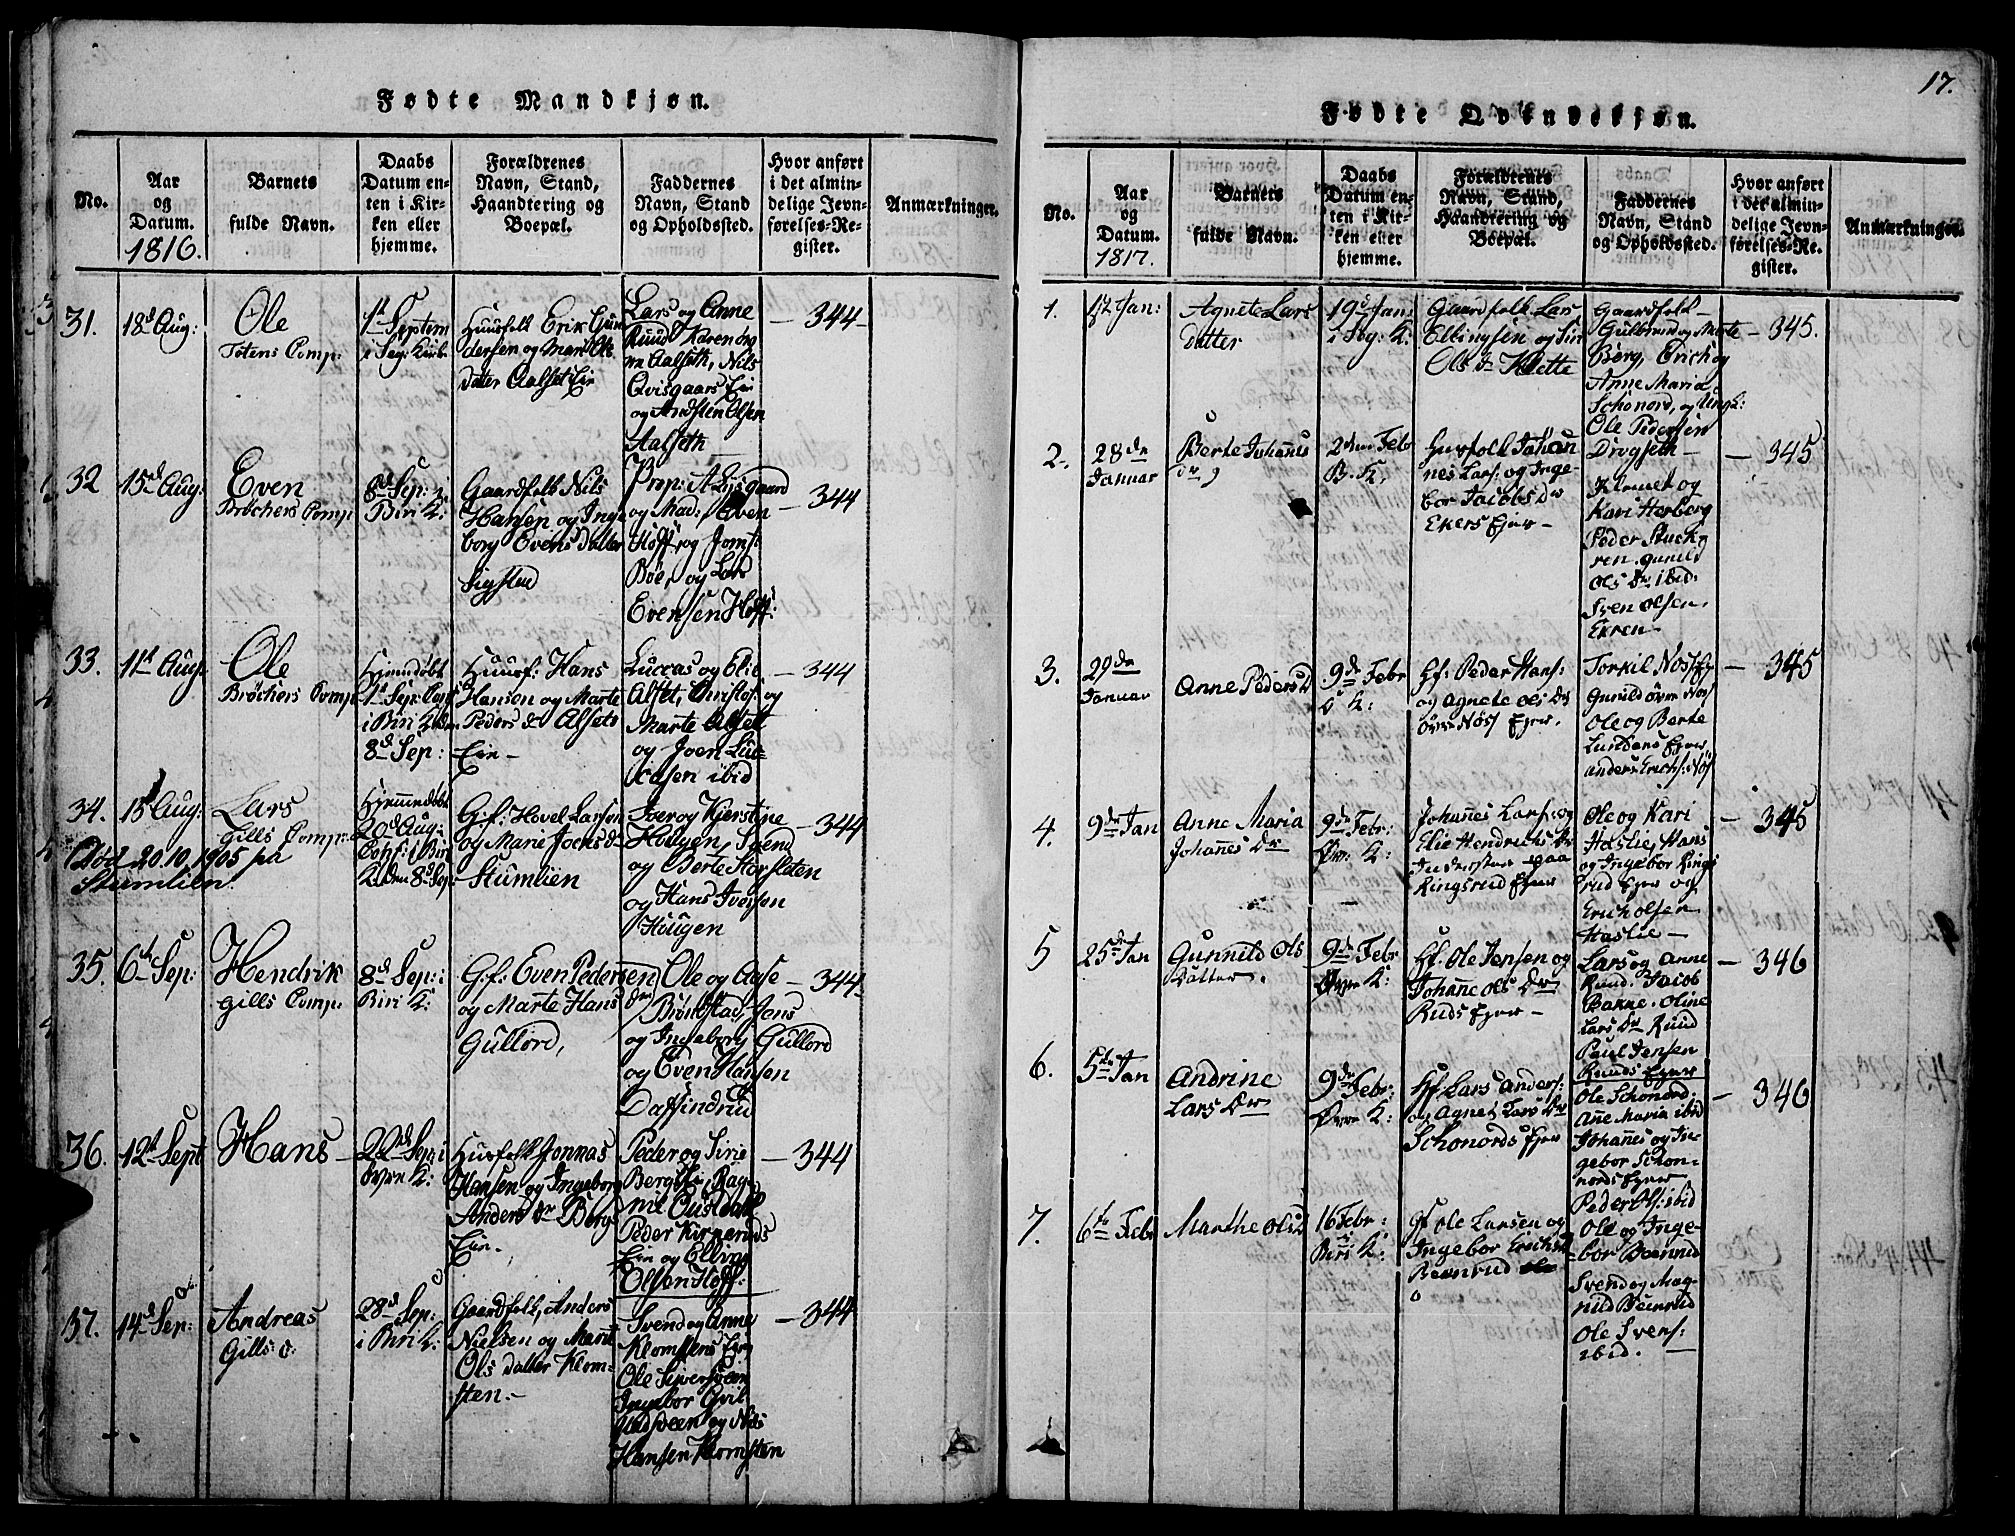 Fødte Mandkjøn.
No.
Aar
og
Datum.
1816.
Barnets
fulde Navn.
Daabs
Datum en-
ten i Kir-
ken eller
hjemme.
Forældrenes
Navn, Stand,
Haandtering og
Boepæl.
Faddernes
Navn, Stand
og Opholdssted.
Hvor anført
i det almin-
delige Jevn-
førelses-Re-
gister.
Anmærkninger.
31.
18d Aug:
Ole
Totens Comp:
1st Septem
i Sog: Kirk:
Huusfolk Erik Gun
dersen og Mari Ole
datter Aalset Eie
Lars og Anne
Ruud Karen
Aalseth, Nils
Qvisgaars Eie
og Andsten Olsen
Aalseth
344
32
15d Aug:
Even
Bröchers Comp:
8d Sep: i
Biri K:
Gaardfolk Nils
Hansen og Inge
borg Evens datter
Sigstad
Prop: A Lysgaard
og Mad: Even
Hoff og
Böe, og Lars
Evensen Hoff:
344
33.
11d Aug:
Ole
Bröchers Comp:
Hjemdöbt
1st Sep: Conf:
i Biri K: den
8d Sep:
Huusf: Hans
Hansen og Marte
Peders dr Alsets
Eie
Luccas og Elie
Alset, Christof: og
Marte Alset
og Joen Luc-
casen ibid
344
34.
15 Aug:
Lars
Gills Comp:
Död 20.10.1905 på
Stumlien.
Hjemmedöbt
20d Aug:
Conf: i Biri
K: den 8d Sep:
G.f: Hovel Larsen
og Marie Joens dr
Stumlien
Iver og Kjerstine
Hougen, Svend
og Berte Storsleten
og Hans Iversen
Hougen
344
35.
6th Sep:
Hendrik
Gills Comp:
8d Sep: i
Biri K:
G.f: Even Pedersen
og Marte Hans dr
Gullord,
Ole og Aase
Bröttstad, Jens
og Ingeborg Gullord
og Even Hansen
Daffindrud
344
36.
12d Sept
Hans
22d Sep: i
övre K:
Husfolk Jonnas
Hansen og Ingeborg
Anders dr Berg
Eie.
Peder og Sirie
Bergsli, Rag-
nil Ousdahl
Peder Kirkeruds
Eie og Ellvag
Olsen Hoff:
344
37.
14d Sep:
Andreas
Gills C:
28d Sep:
i Biri K:
Gaardfolk, Anders
Nielsen og Mari
Ols datter Klom-
sten.
Svend og Anne
Klomstens Eie
Ole Siversveen
Ingebor Qvil
og Nils
Hansen Klomsten
344
17.
Fødte Qvindekjøn.
No.
Aar
og
Datum.
1817.
Barnets
fulde Navn.
Daabs
Datum en-
ten i Kir-
ken eller
hjemme.
Forældrenes
Navn, Stand,
Haandtering og
Boepæl.
Faddernes
Navn, Stand
og Opholdssted.
Hvor anført
i det almin-
delige Jevn-
førelses-Re-
gister.
Anmærkninger.
1.
Jan:
Agnete Lars
datter
19d Jan:
i Sog: K:
Gaardfolk Lars
Ellingsen og Siri
Ols dr Klette
Gaardfolk
Gulbrand og Marte
Berg, Erich og
Anne Maria
Schonord, og Ungk:
Ole Pedersen
Drogseth
345.
2.
28de
Januar
Berte Johannis
dr
2den Febr
B. K:
Husfolk Johan
nes Lars: og Inge
bor Jacobs dr
Ekers Ejer
Klemet og
Kari Herberg
Peder
ren. Gunild
ols dr ibid.
Sven Olsen.
Ekren
345
3.
29de
Januar
Anne Pedersd
9de Febr
K:
Hf: Peder Hans:
og Agnete Ols dr
övre Nöss Ejer.
Torkil Noss og
Gunild övre Nöss
Ole og Berte
Lundens Ejer
Anders Erichs: Nöss
345
4.
9de Jan
Anne Maria
Johannes Dr
9de Febr:
Övre K:
Johannes Lars: og
Elie Hendrichs dr
Inderster paa
Ringsrud Ejer
Ole og Kari
Haslie, Hans
og Ingebor Rings
rud Ejer og
Erich Olsen
Haslie
345
5
25d Jan
Gunnild Ols
datter.
9de Febr
Övre K:
Hf. Ole Jensen og
Johane Ols Dr
Ruds Ejer
Lars og Anne
Ruud. Jacob
Bakke. Oline
Lars Dr Ruud
Paul Jensen
Ruuds Ejer
346
6.
5te Jan
Andrine
Lars Dr
9de Febr:
Övre K:
Hf: Lars Anders:
og Agnet Lars Dr
Schonords Ejer
Ole Schonord:
Ane Maria ibid
Johannes og In-
gebor Schon-
nords Ejer
Peder Ols: ibid
346
7.
6te Febr
Marthe Olsd
16 Febr:
Biri K:
Gf Ole Larsen og
Ingebor Erichsd
Bænrud
Ole og Inge-
bor Bænrud
Svend og Mag-
nild Bænrud
Ole Svens:
ibid.